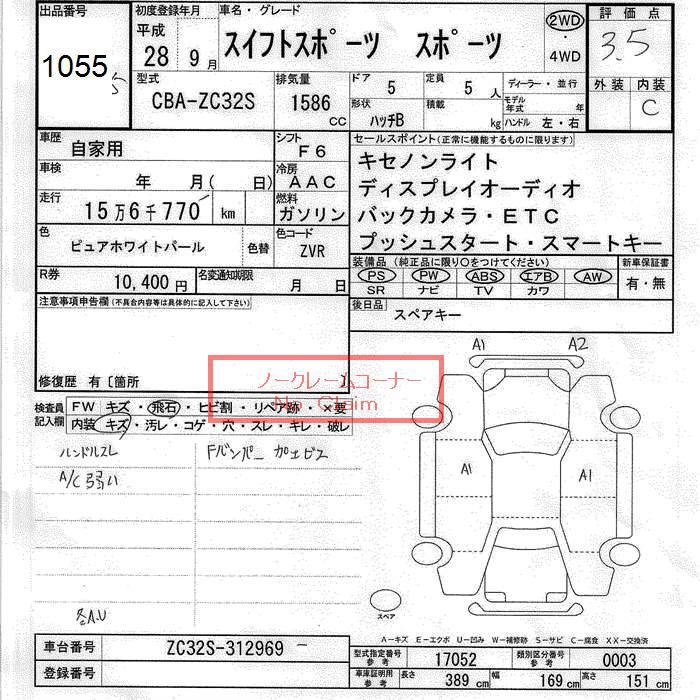 出品番号
1055
初度登録年月
平成
28年9月
車名・グレード
スイフトスポーツ スポーツ
2WD
・
4WD
評価点
3.5
外装 内装
C
型式
CBA-ZC32S
排気量
1586
CC
ドア 5
定員 5 人
ディーラー・並行
形状 ハッチB
積載 kg
モデル年式 年
ハンドル 左・右
車歴 自家用
シフト F6
車検 年 月( 日)
冷房 AAC
走行 15万6千770 km
燃料 ガソリン
色 ピュアホワイトパール 色替
色コード ZVR
R券 10,400円
名変通知期限 月 日
セールスポイント(正常に機能するものに限ります)
キセノンライト
ディスプレイオーディオ
バックカメラ・ETC
プッシュスタート・スマートキー
装備品 (純正品に限り○をつけてください) 新車保証書
PS PW ABS エアB AW
SR ナビ TV カワ
有・無
後日品 スペアキー
注意事項申告欄(不具合内容等は具体的に記入して下さい)
修復歴 有〔箇所 〕
ノークレームコーナー
No Claim
検査員記入欄
FW キズ・飛石・ヒビ割・リペア跡・×要
内装 キズ・汚レ・コゲ・穴・スレ・キレ・破レ
ハンドルスレ Fバンパー カエビス
A/C弱い
各A.U
A1 A2
A1 A1
スペア
A-キズ E-エクボ U-凹み W-補修跡 S-サビ C-腐食 XX-交換済
車台番号 ZC32S-312969
登録番号
型式指定番号 参考 17052
類別区分番号 参考 0003
車庫証明用 参考 長さ 389 cm 幅 169 cm 高さ 151 cm